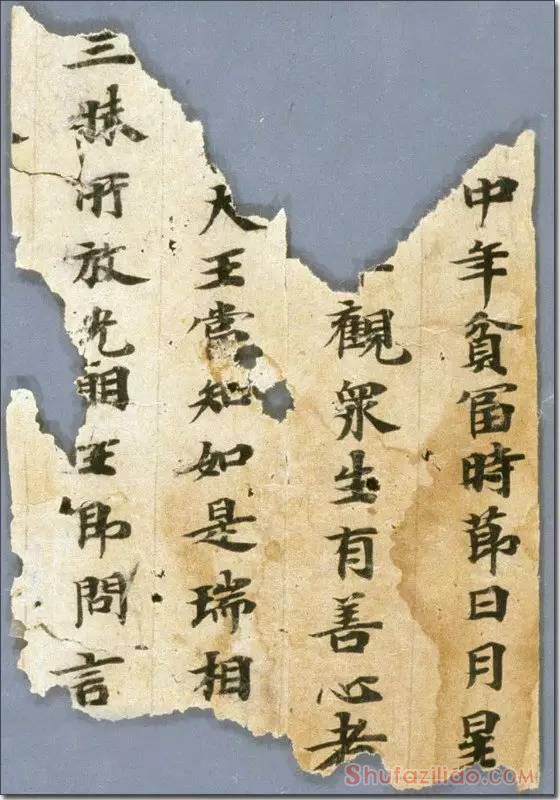 中年貧冨時節日月星
觀衆生有善心者
大王當知如是瑞相
三昧所放光明王即問言
Shufaziliao.com